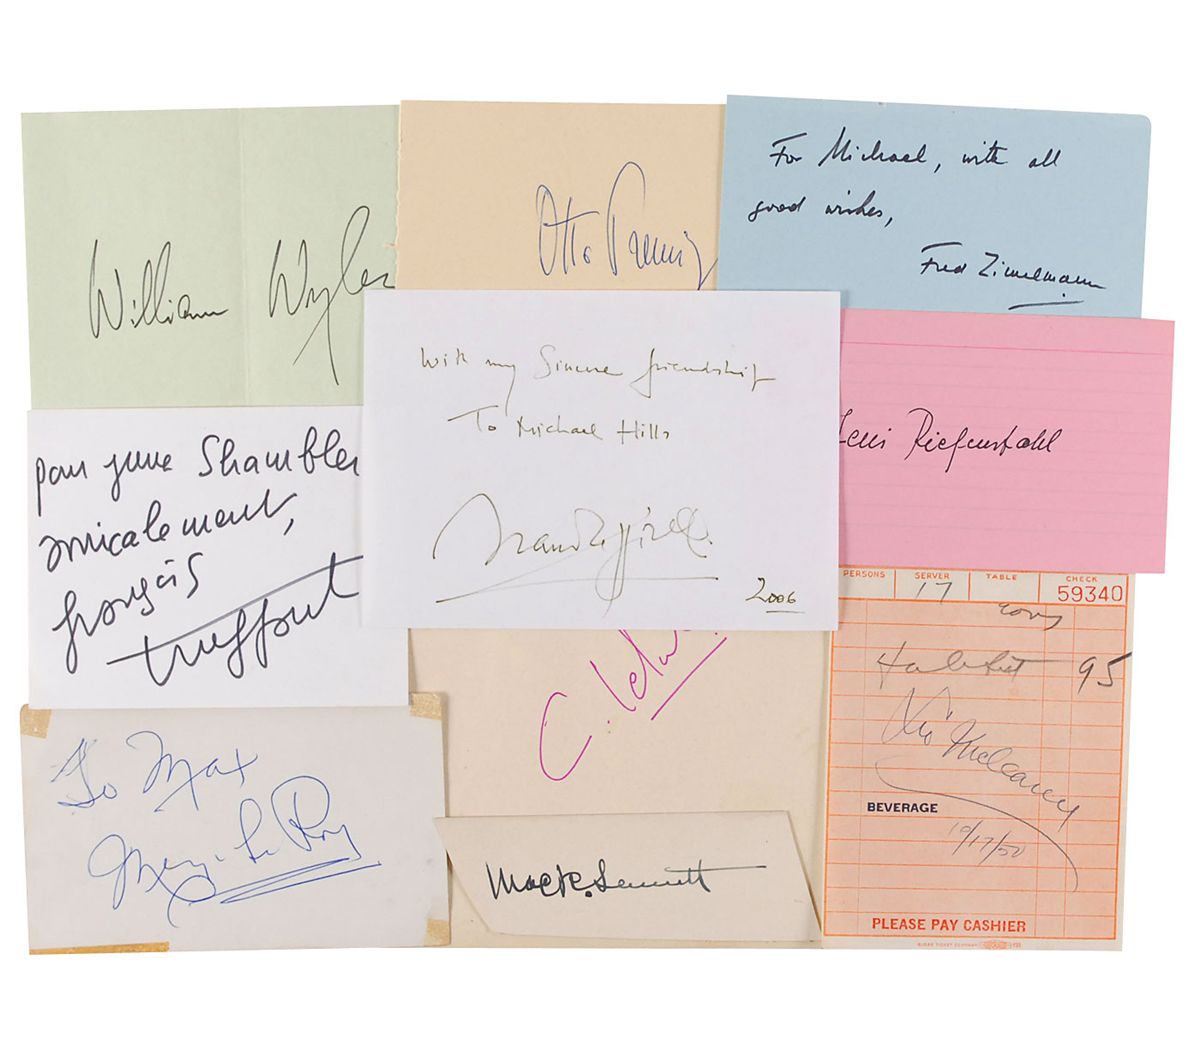 William Wyler
Otto Preming
For Michael, with all
good wishes,
Fred Zinnemann
With my Sincere friendship
To Michael Hills
Franco Zeffirelli
2006
Leni Riefenstahl
pour june Shambler
amicalement,
françois
truffaut
PERSONS SERVER TABLE CHECK
17 59340
Halibut 95
Leo McCarey
BEVERAGE
10/17/50
PLEASE PAY CASHIER
C. Lelou
To Max
Mervyn Le Roy
Mack Sennett